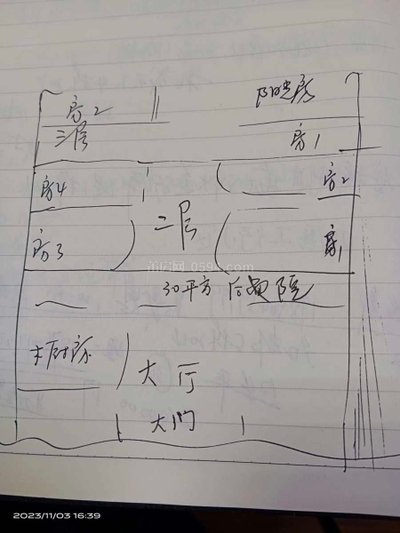 房2
阳光房
三层
房1
房4
房2
二层
房3
房1
30平方 后庭院
木厨房
大厅
大门
2023/11/03 16:39